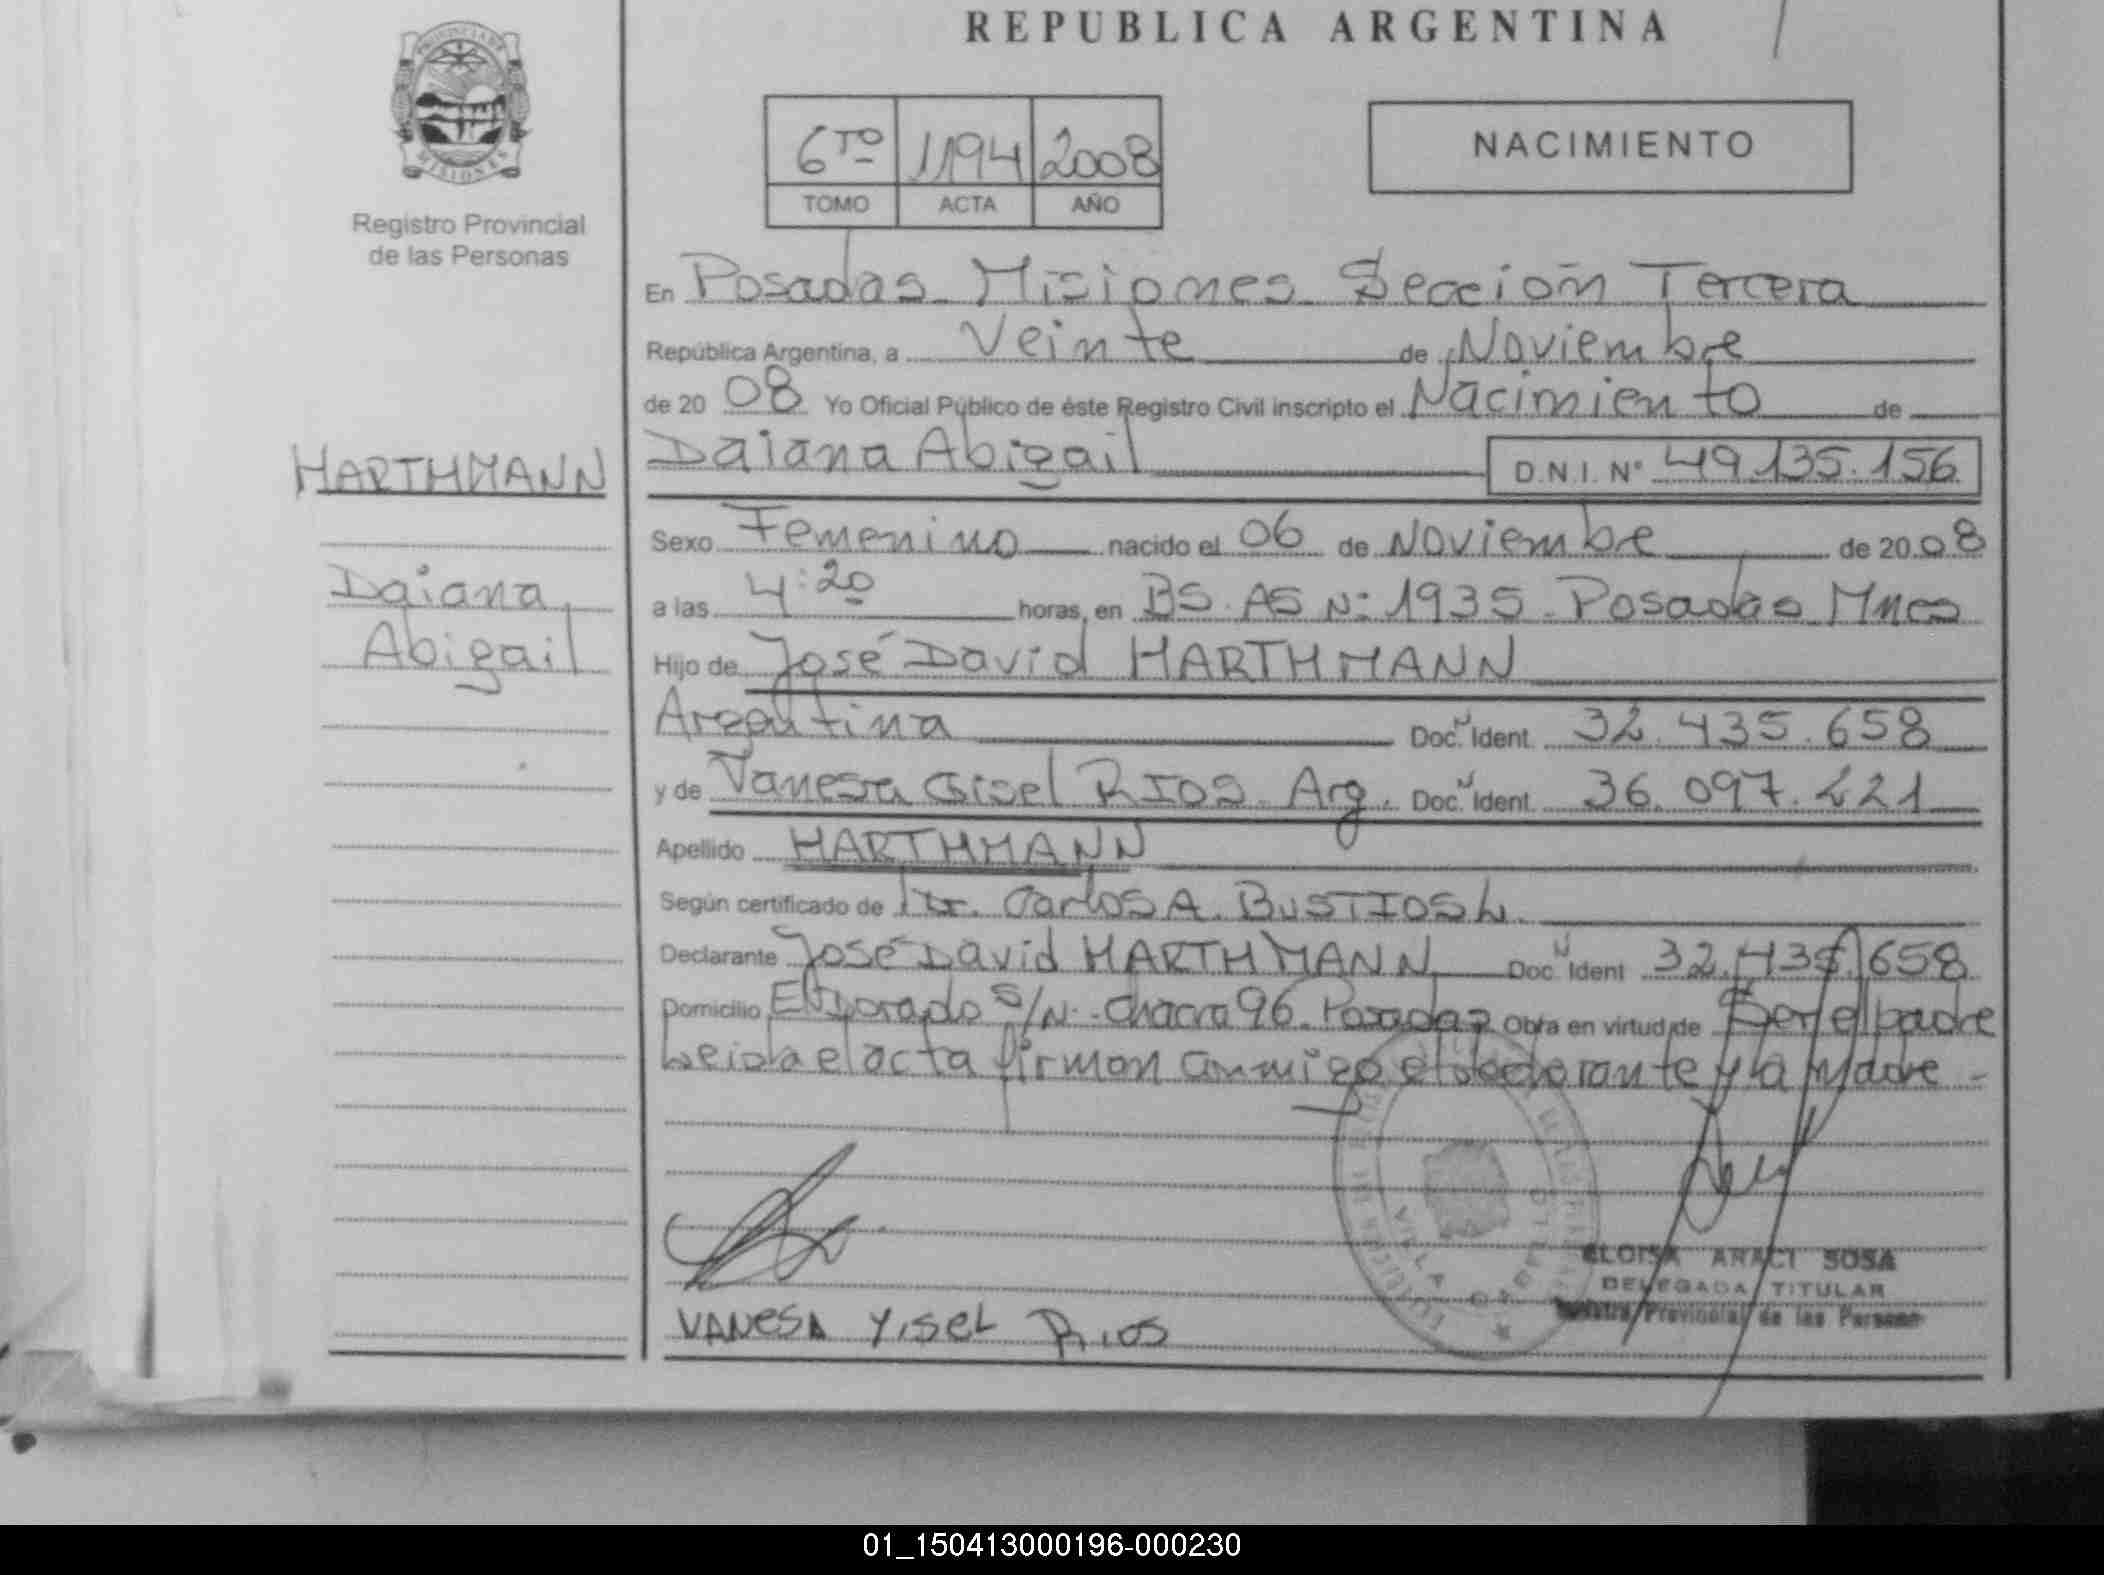 REPUBLICA ARGENTINA
PROVINCIA DE
MISIONES
Registro Provincial
de las Personas
6TO 1194 2008
TOMO ACTA AÑO
NACIMIENTO
En Posadas Misiones Sección Tercera
República Argentina, a Veinte de Noviembre
de 20 08 Yo Oficial Público de éste Registro Civil inscripto el Nacimiento de
HARTHMANN
Daiana Abigail D.N.I. Nº 49.135.156
Sexo Femenino nacido el 06 de Noviembre de 20 08
Daiana
Abigail
a las 4:20 horas, en BS. AS N: 1935. Posadas Mnes
Hijo de José David HARTHMANN
Argentina Doc. Ident. 32.435.658
y de Vanesa Gisel RIOS Arg. Doc. Ident. 36.097.221
Apellido HARTHMANN
Según certificado de Dr. Carlos A. BUSTIOS L.
Declarante José David HARTHMANN Doc. Ident 32.435.658
Domicilio El Dorado S/N. Chacra 96. Posadas Obra en virtud de Ser el padre
Leida el acta firman conmigo el declarante y la Madre -
ELOISA ARACI SOSA
DELEGADA TITULAR
Registro Provincial de las Personas
VANESA YISEL RIOS
01_150413000196-000230